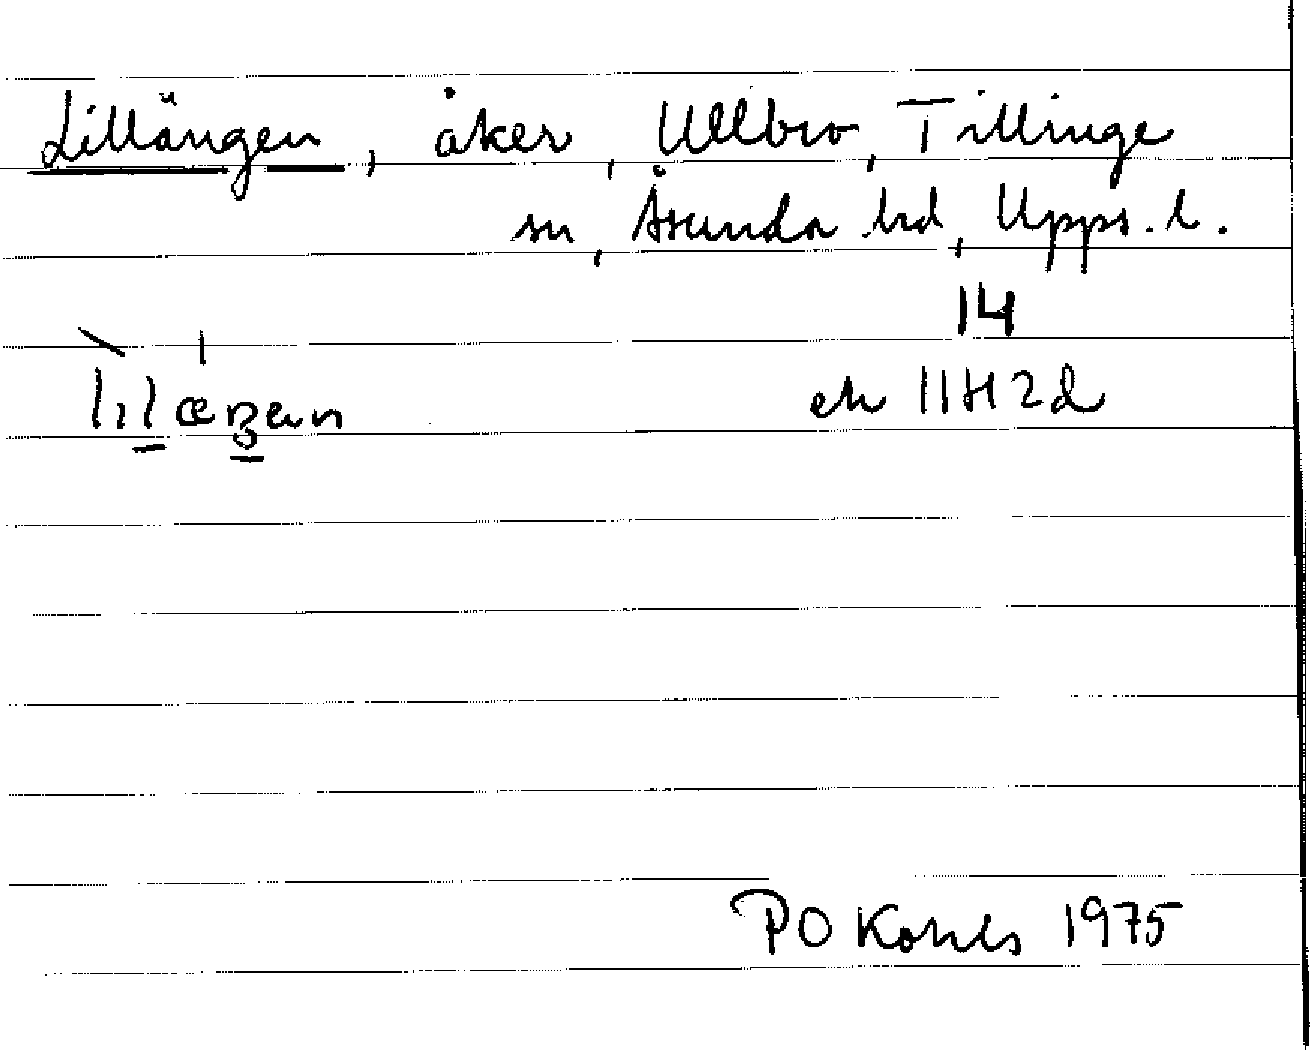 Lillängen, åker, Ullbro, Tillinge
sn, Åsunda hd, Upps. l.
14
ek 11H2d
PO Kohls 1975